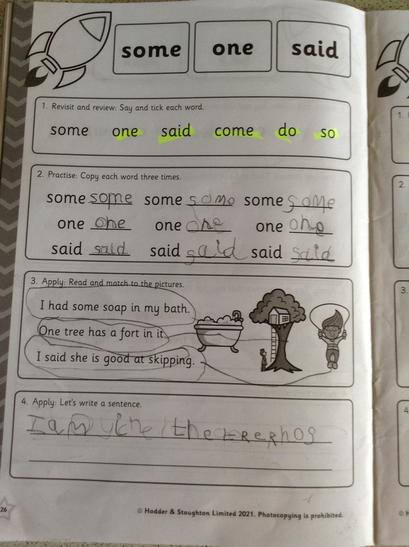 some one said
1. Revisit and review: Say and tick each word.
some one said come do so
2. Practise: Copy each word three times.
some some some some some some
one one one one one one
said said said said said said
3. Apply: Read and match to the pictures.
I had some soap in my bath.
One tree has a fort in it.
I said she is good at skipping.
4. Apply: Let's write a sentence.
I am the
26
© Hodder & Stoughton Limited 2021. Photocopying is prohibited.